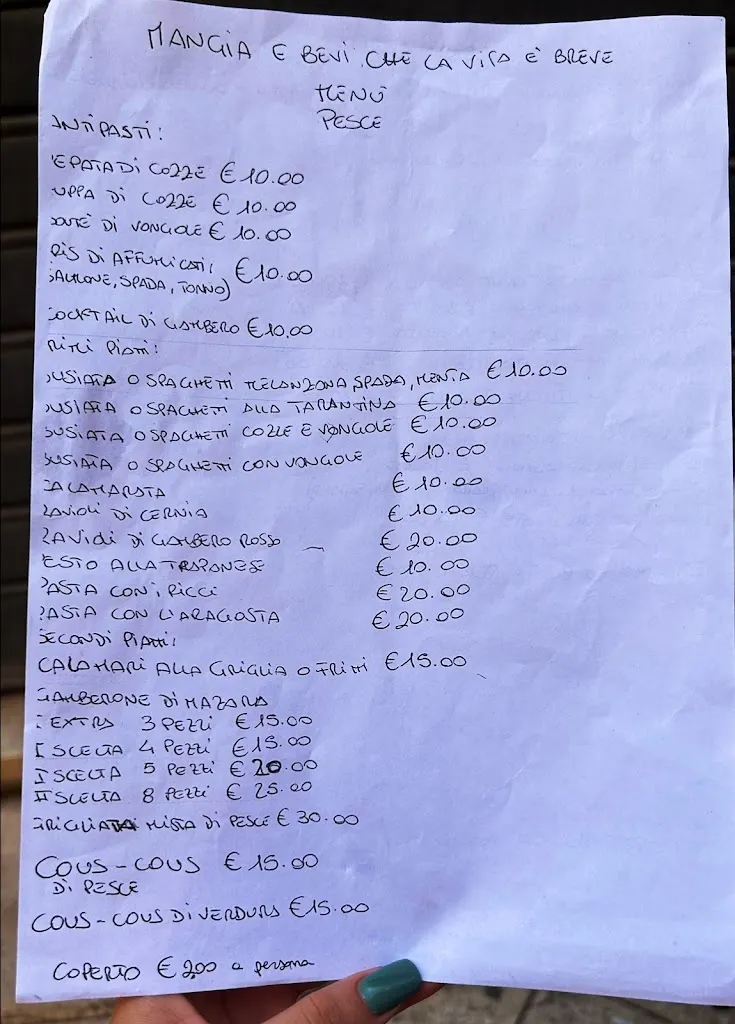 MANGIA E BEVI CHE LA VITA E' BREVE
MENÚ
PESCE
ANTIPASTI:
EPATA DI COZZE € 10.00
UPPA DI COZZE € 10.00
OUTÈ DI VONGOLE € 10.00
RIS DI AFFUMICATI € 10.00
SALMONE, SPADA, TONNO)
COCKTAIL DI GAMBERO € 10.00
RIMI PIATTI:
BUSIATA O SPAGHETTI MELANZANA, SPADA, MENTA € 10.00
BUSIATA O SPAGHETTI ALLA TARANTINA € 10.00
BUSIATA O SPAGHETTI COZZE E VONGOLE € 10.00
BUSIATA O SPAGHETTI CON VONGOLE € 10.00
CALAMARATA € 10.00
RAVIOLI DI CERNIA € 10.00
RAVIOLI DI GAMBERO ROSSO € 20.00
ESTO ALLA TRAPANESE € 10.00
PASTA CON I RICCI € 20.00
PASTA CON L'ARAGOSTA € 20.00
SECONDI PIATTI:
CALAMARI ALLA GRIGLIA O FRITTI € 15.00
GAMBERONE DI MAZARA
EXTRA 3 PEZZI € 15.00
I SCELTA 4 PEZZI € 15.00
I SCELTA 5 PEZZI € 20.00
II SCELTA 8 PEZZI € 25.00
GRIGLIATA MISTA DI PESCE € 30.00
COUS-COUS € 15.00
DI PESCE
COUS-COUS DI VERDURA € 15.00
COPERTO € 2,00 a persona